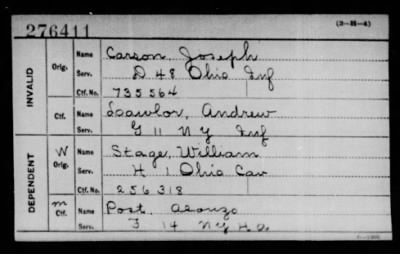 276411
(3-H-4)
INVALID
Orig. Name Carson Joseph
Serv. D 48 Ohio Inf
Ctf. No. 735564
Ctf. Name Lawlor, Andrew
Serv. G 11 N Y Inf
DEPENDENT
W Orig. Name Stage, William
Serv. H 1 Ohio Cav
Ctf. No. 256318
m Ctf. Name Post, Alonzo
Serv. 14 NY H.A.